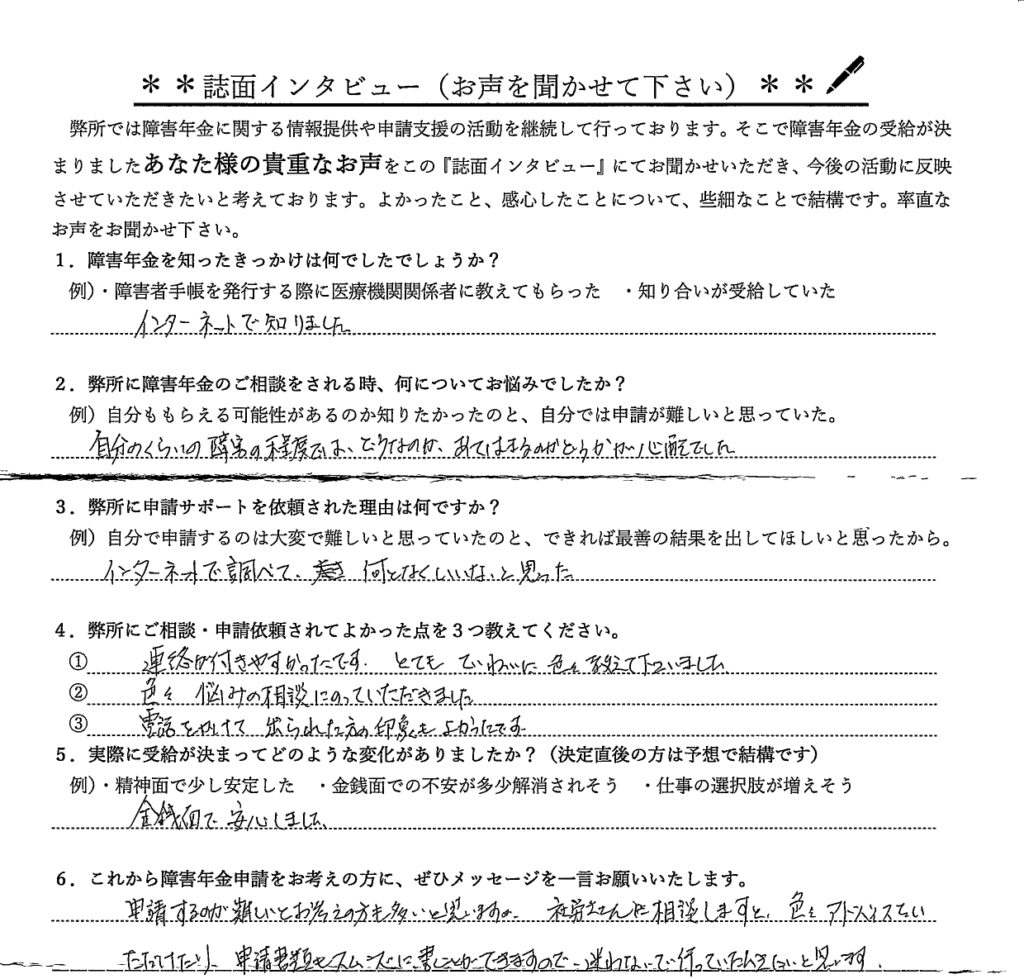 ＊＊誌面インタビュー（お声を聞かせて下さい）＊＊
弊所では障害年金に関する情報提供や申請支援の活動を継続して行っております。そこで障害年金の受給が決
まりましたあなた様の貴重なお声をこの『誌面インタビュー』にてお聞かせいただき、今後の活動に反映
させていただきたいと考えております。よかったこと、感心したことについて、些細なことで結構です。率直な
お声をお聞かせ下さい。
１．障害年金を知ったきっかけは何でしたでしょうか？
例）・障害者手帳を発行する際に医療機関関係者に教えてもらった　・知り合いが受給していた
インターネットで知りました
２．弊所に障害年金のご相談をされる時、何についてお悩みでしたか？
例）自分ももらえる可能性があるのか知りたかったのと、自分では申請が難しいと思っていた。
自分のくらいの障害の程度では、どうなのか、あてはまるのかどうかが心配でした
３．弊所に申請サポートを依頼された理由は何ですか？
例）自分で申請するのは大変で難しいと思っていたのと、できれば最善の結果を出してほしいと思ったから。
インターネットで調べて、何となくいいな、と思った
４．弊所にご相談・申請依頼されてよかった点を３つ教えてください。
① 連絡が付きやすかったです。とても ていねいに 色々教えて下さいました
② 色々 悩みの相談にのっていただきました
③ 電話をかけて 出られた方の印象も よかったです。
５．実際に受給が決まってどのような変化がありましたか？（決定直後の方は予想で結構です）
例）・精神面で少し安定した　・金銭面での不安が多少解消されそう　・仕事の選択肢が増えそう
金銭面で安心しました、
６．これから障害年金申請をお考えの方に、ぜひメッセージを一言お願いいたします。
申請するのが難しいとお考えの方も多いと思いますの、 社労士さんに相談しますと、色々アドバイスをい
ただけたり、申請書類もスムーズに書くことができますので、迷わないで行っていただきたいと思います．